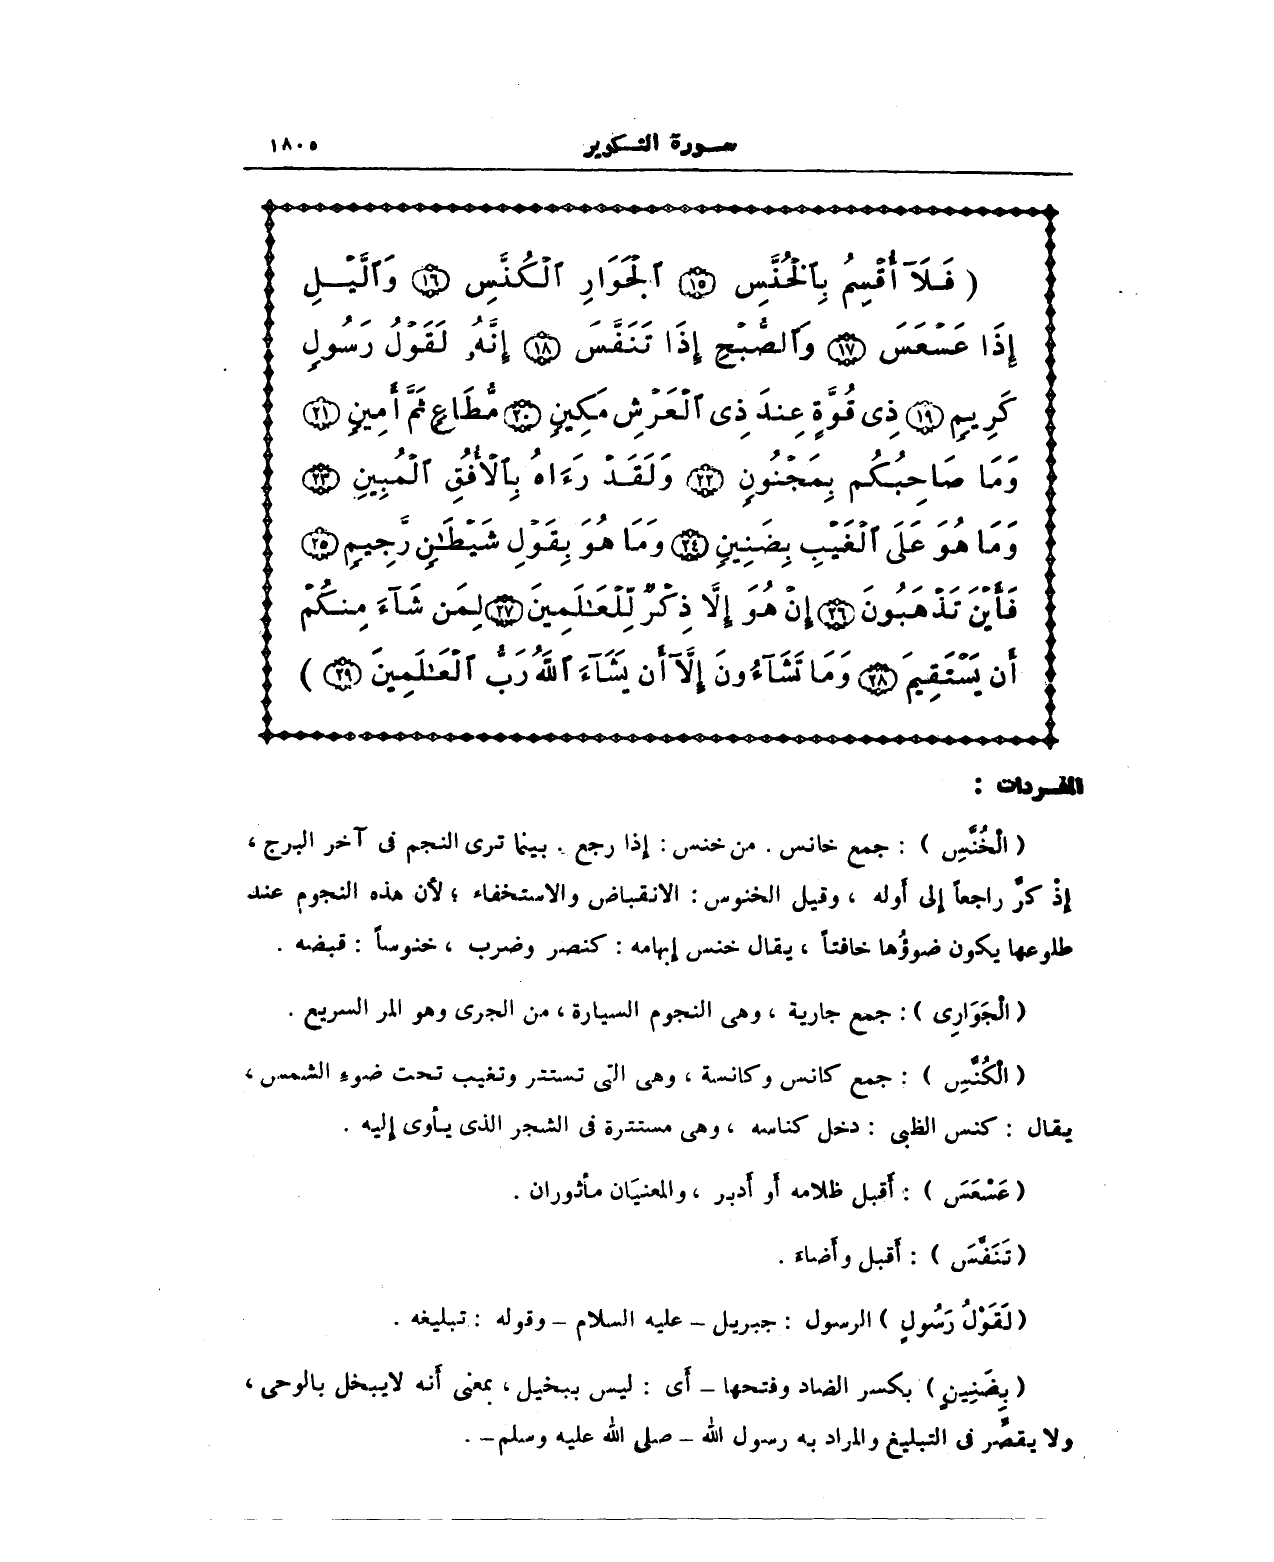 سورة التكوير ١٨٠٥
( فَلَآ أُقْسِمُ بِٱلْخُنَّسِ ۝١٥ ٱلْجَوَارِ ٱلْكُنَّسِ ۝١٦ وَٱلَّيْلِ
إِذَا عَسْعَسَ ۝١٧ وَٱلصُّبْحِ إِذَا تَنَفَّسَ ۝١٨ إِنَّهُۥ لَقَوْلُ رَسُولٍ
كَرِيمٍ ۝١٩ ذِى قُوَّةٍ عِندَ ذِى ٱلْعَرْشِ مَكِينٍ ۝٢٠ مُّطَاعٍ ثَمَّ أَمِينٍ ۝٢١
وَمَا صَاحِبُكُم بِمَجْنُونٍ ۝٢٢ وَلَقَدْ رَءَاهُ بِٱلْأُفُقِ ٱلْمُبِينِ ۝٢٣
وَمَا هُوَ عَلَى ٱلْغَيْبِ بِضَنِينٍ ۝٢٤ وَمَا هُوَ بِقَوْلِ شَيْطَٰنٍ رَّجِيمٍ ۝٢٥
فَأَيْنَ تَذْهَبُونَ ۝٢٦ إِنْ هُوَ إِلَّا ذِكْرٌ لِّلْعَٰلَمِينَ ۝٢٧ لِمَن شَآءَ مِنكُمْ
أَن يَسْتَقِيمَ ۝٢٨ وَمَا تَشَآءُونَ إِلَّآ أَن يَشَآءَ ٱللَّهُ رَبُّ ٱلْعَٰلَمِينَ ۝٢٩ )
المفردات :
( الْخُنَّسِ ) : جمع خانس . من خنس : إذا رجع . بينما ترى النجم فى آخر البرج ،
إِذْ كرَّ راجعاً إلى أَوله ، وقيل الخنوس : الانقباض والاستخفاء ؛ لأن هذه النجوم عند
طلوعها يكون ضوؤُها خافتاً ، يقال خنس إبهامه : كنصر وضرب ، خنوساً : قبضه .
( الْجَوَارِى ) : جمع جارية ، وهى النجوم السيارة ، من الجرى وهو المر السريع .
( الْكُنَّسِ ) : جمع كانس وكانسة ، وهى التى تستتر وتغيب تحت ضوءِ الشمس ،
يقال : كنس الظبى : دخل كناسه ، وهى مستترة فى الشجر الذى يأوى إليه .
( عَسْعَسَ ) : أَقبل ظلامه أَو أَدبر ، والمعنيَان مأثوران .
( تَنَفَّسَ ) : أَقبل وأَضاءَ .
( لَقَوْلُ رَسُولٍ ) الرسول : جبريل – عليه السلام – وقوله : تبليغه .
( بِضَنِينٍ ) بكسر الضاد وفتحها – أَى : ليس ببخيل ، بمعنى أَنه لايبخل بالوحى ،
ولا يقصَّر فى التبليغ والمراد به رسول الله – صلى الله عليه وسلم – .